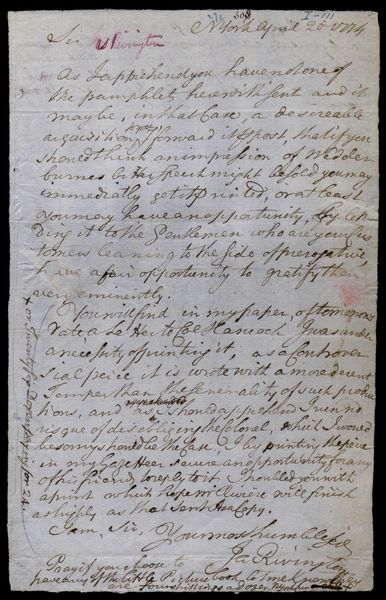 Sir N York April 20 1774
As I apprehend you have not one of
the pamphlet herewith sent and it
may be, in that Case, a desireable
acquisition, I forward it p post, that if you
should think an impression of Wedder
burnes Speech might be sold, you may
immediately get it printed, or at least
you may have an opportunity, by len
ding it to the Gentlemen who are your Cus
tomers leaning to the side of prerogative,
have a fair opportunity to gratify them
very eminently.
You will find in my paper, of tomorrow
date a Letter to Col Hancock I was under
a necessity of printing it, as a controver
sial peice it is wrote with a more decent
Temper than the generality of such produc
tions, and as I should apprehend I run no
risque of disobliging the Colonel, which I wou'd
be sorry should be the Case, I by printing the peice
in my Gazetteer secure an opportunity for any
of his friends to reply to it. I trouble you with
a print which I hope
as that sent the Copy.
I am, Sir,
Your most humble
Ja Rivington
Pray if you choose to
have any of the little Picture book let me know they
are four shillings a dozen